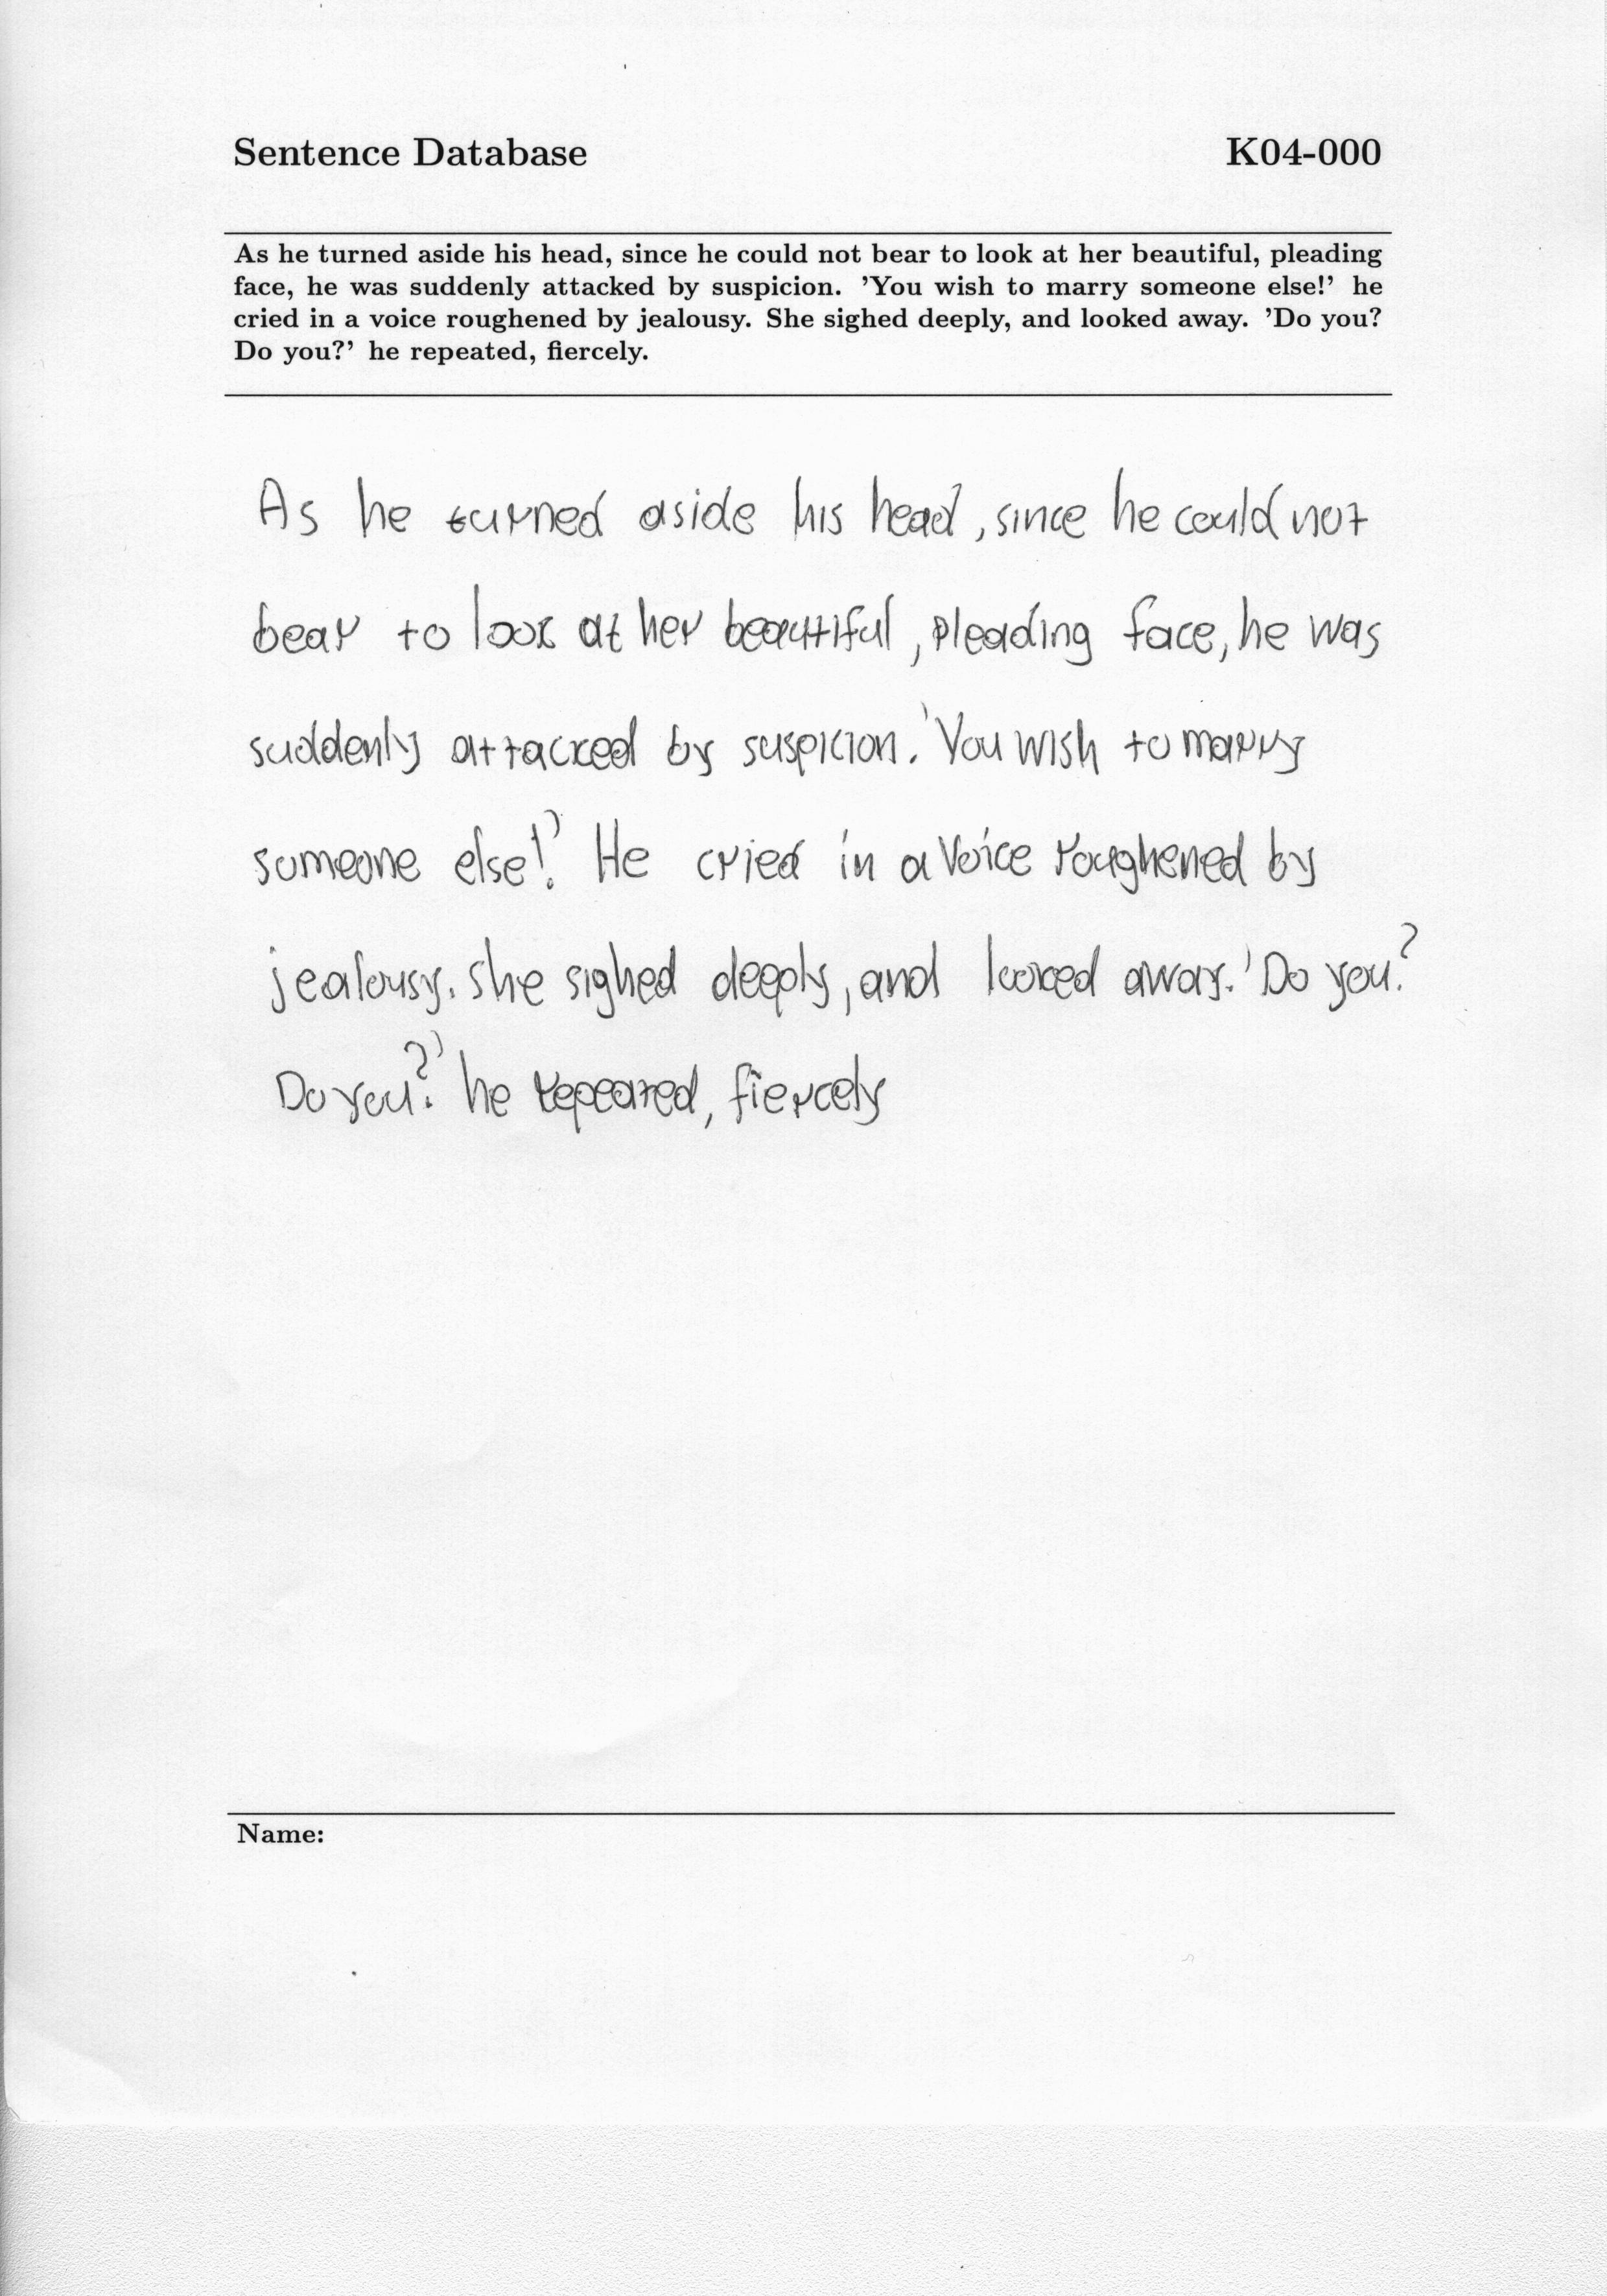 Sentence Database K04-000
As he turned aside his head, since he could not bear to look at her beautiful, pleading
face, he was suddenly attacked by suspicion. 'You wish to marry someone else!' he
cried in a voice roughened by jealousy. She sighed deeply, and looked away. 'Do you?
Do you?' he repeated, fiercely.
As he turned aside his head, since he could not
bear to look at her beautiful, pleading face, he was
suddenly attacked by suspicion. 'You wish to marry
someone else!' He cried in a voice roughened by
jealousy. She sighed deeply, and looked away. 'Do you?
Do you?' he repeated, fiercely
Name: